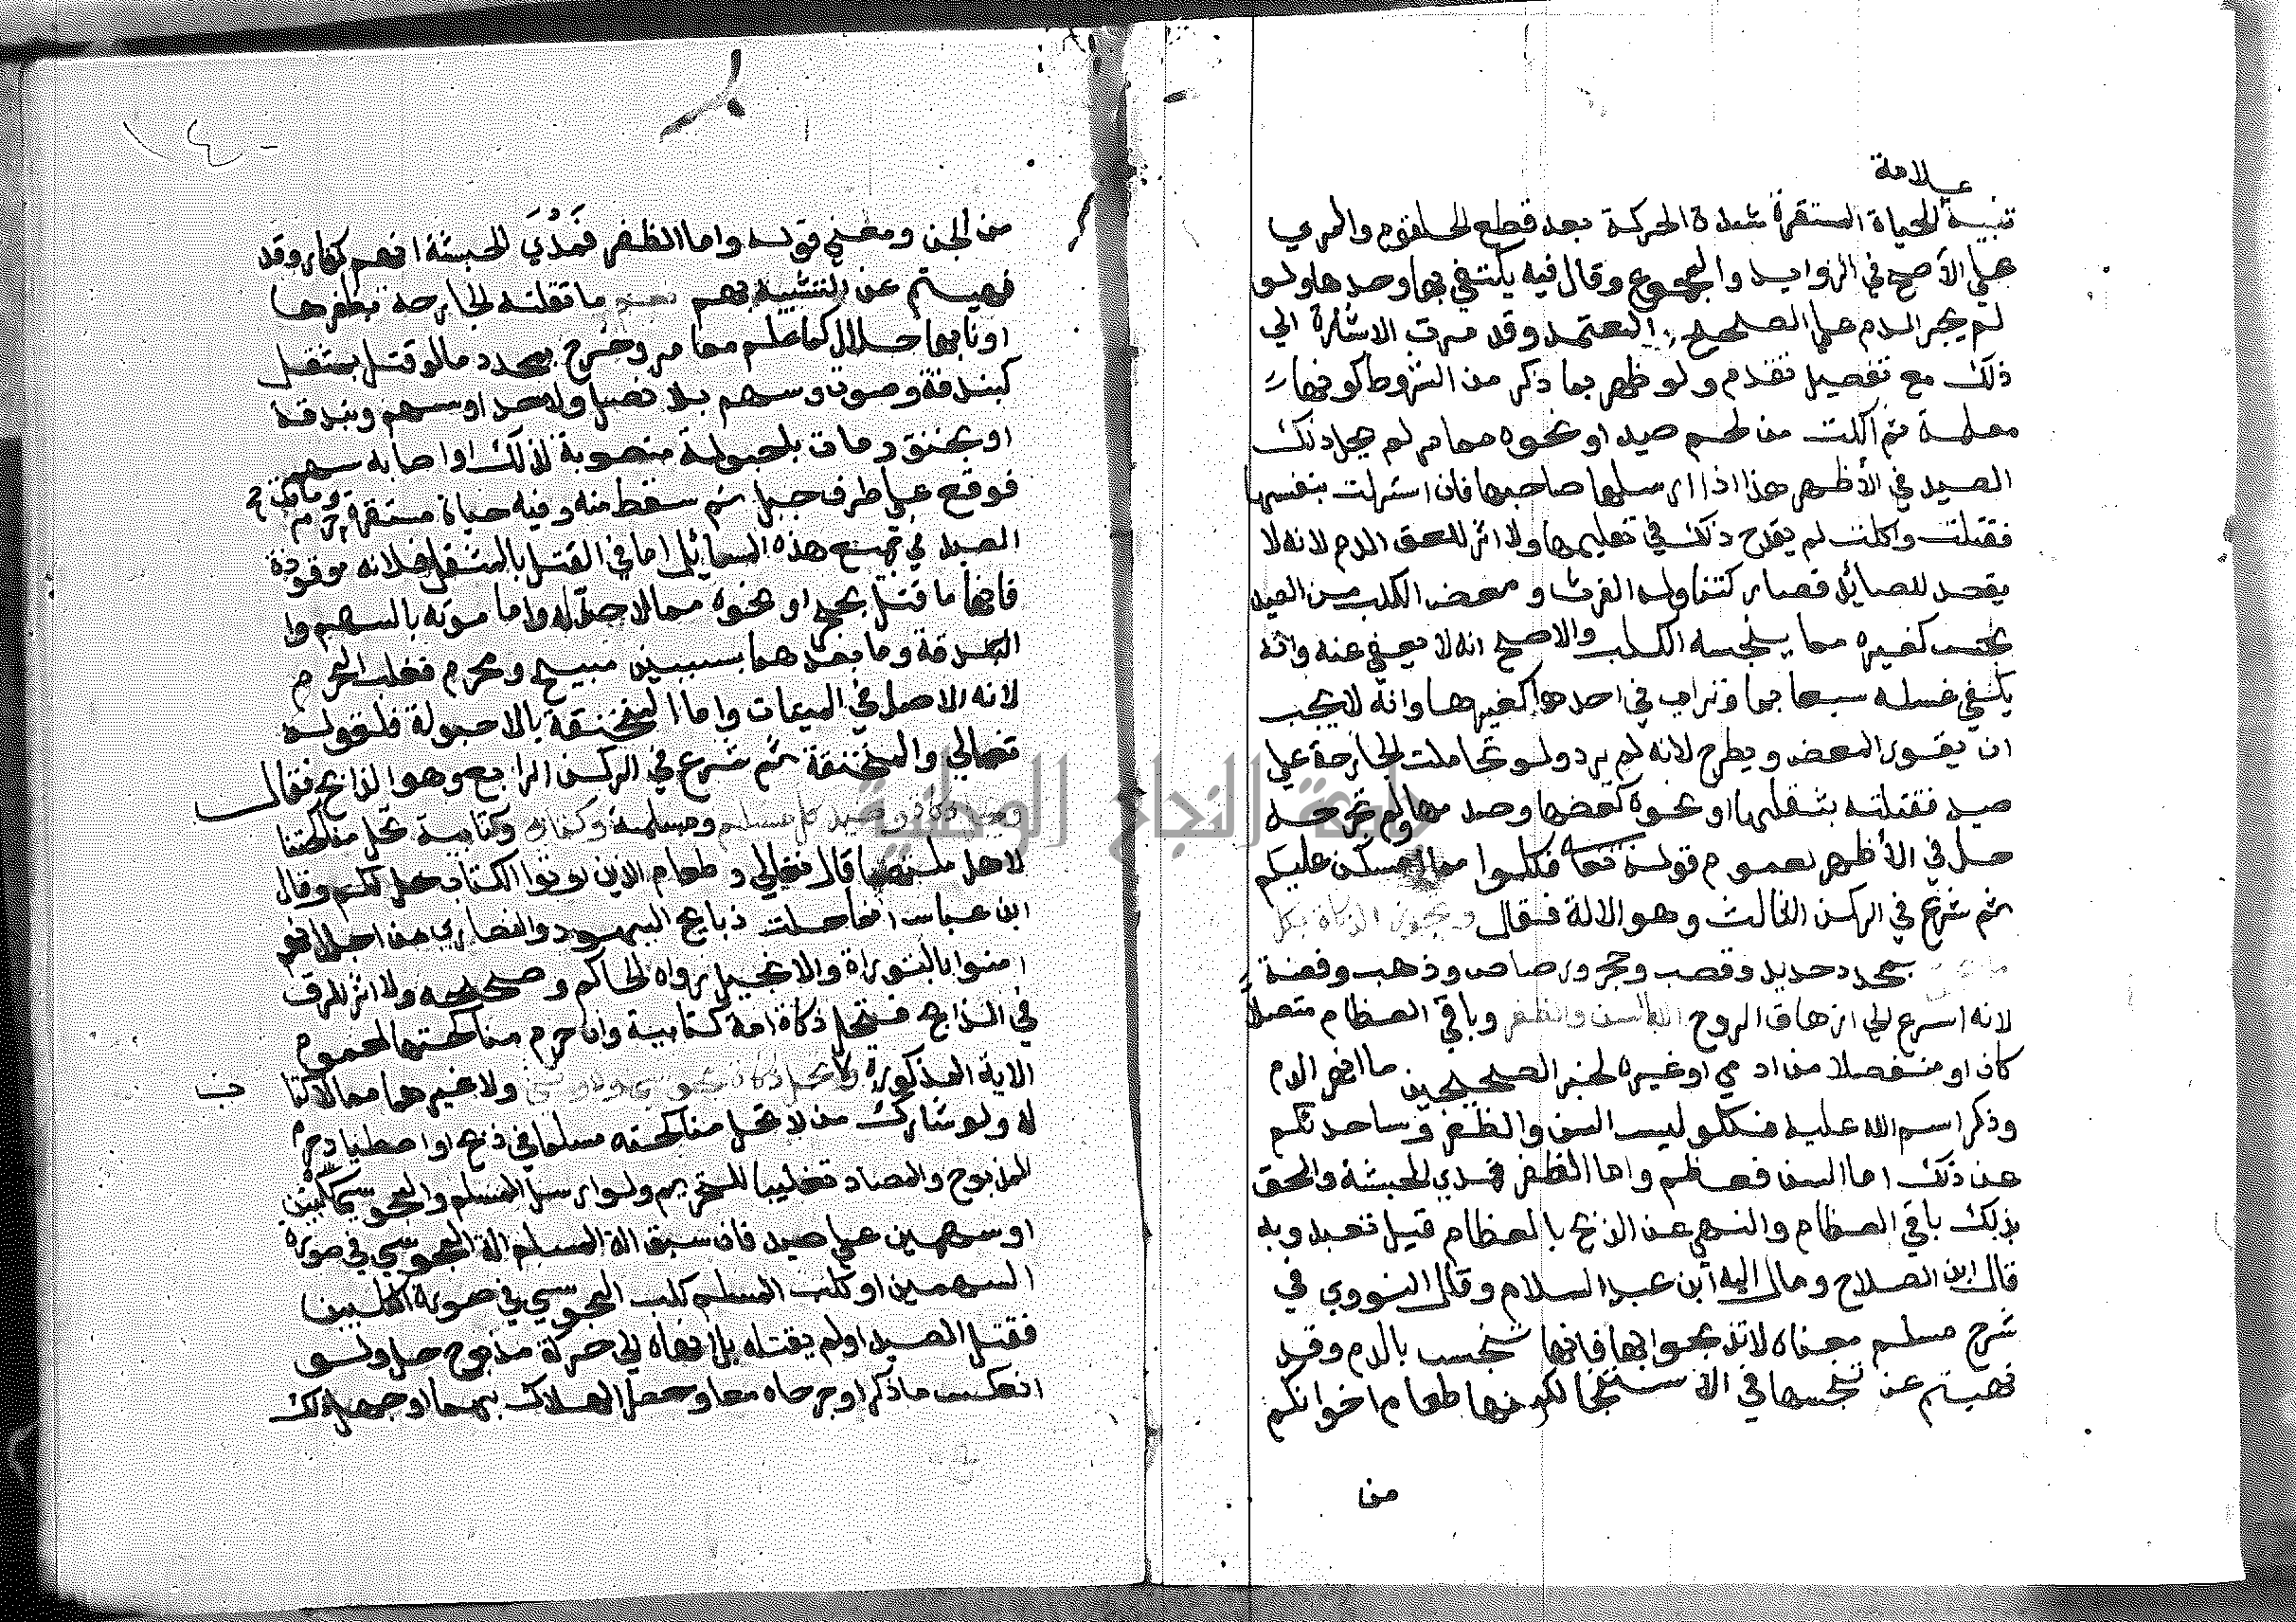 علامة
تنبيه الحياة المستقرة شدة الحركة بعد قطع الحلقوم والمري
على الأصح في الزوايد والمجموع وقال فيه يكتفي بها وحدها ولو
لم يجر الدم على الصحيح المعتمد وقد مرت الاشارة الى
ذلك مع تفصيل تقدم ولو ظهر بما ذكر من الشروط كونها
معلمة ثم اكلت من لحم صيد او نحوه مما مر لم يحل ذلك
الصيد في الأظهر هذا اذا ارسلها صاحبها فان استرسلت بنفسها
فقتلت واكلت لم يقدح ذلك في تعليمها ولا اثر للعق الدم لانه لا
يقصد للصائد فصار كتناوله الفرث ومعض الكلب من الصيد
نجس كغيره مما ينجسه الكلب والاصح انه لا يعفى عنه وانه
يكفي غسله سبعا بما وتراب في احدها كغيرها وانه لا يجب
ان يقور المعض ويطرح لانه لم يرد ولو تحاملت الجارحة على
صيد فقتلته بثقلها او نحوه كعضها وصدمها ولم تجرحه
حل في الأظهر لعموم قوله تعا فكلوا مما امسكن عليكم
ثم شرع في الركن الثالث وهو الالة فقال وتجوز الذكاة بكل
بمحدد حديد وقصب وحجر ورصاص وذهب وفضة
لانه اسرع الى ازهاق الروح الا السن والظفر وباقي العظام متصلا
كان او منفصلا من ادمي او غيره لخبر الصحيحين ما انهر الدم
وذكر اسم الله عليه فكلو ليس السن والظفر وساحدثكم
عن ذلك اما السن فعظم واما الظفر فمدي الحبشة والحق
بذلك باقي العظام والنهي عن الذبح بالعظام قيل تعبد وبه
قال ابن الصلاح ومال اليه ابن عبد السلام وقال النووي في
شرح مسلم معناه لا تذبحوا بها فانها تنجس بالدم وقد
نهيتم عن تنجسها في الاستنجا لكونها طعام اخوانكم
من
من الجن ومعنى قوله واما الظفر فمدى الحبشة انهم كفار وقد
نهيتم عن التشبيه بهم نعم ما تقتله الجارحة بظفرها
او نابها حلال كما علم مما مر وخرج بمحدد ما لو قتل بمثقل
كبندقة وسوط وسهم بلا نصل ولا حد او سهم وبندقة
او بخنق ومات بلحبولة منصوبة لذلك او اصابه سهم
فوقع على طرف جبل ثم سقط منه وفيه حياة مستقرة ومات حرم
الصيد في جميع هذه المسائل اما في القتل بالمثقل فلانه موقوذة
فانها ما قتل بحجر او نحوه مما لا حد له واما موته بالسهم وا
البندقة وما بعدهما بسببين مبيح ومحرم فغلب المحرم
لانه الاصل في الميتات واما المنخنقة بالاحبولة فلقوله
تعالى والمنخنقة ثم شرع في الركن الرابع وهو الذابح فقال
وتحل ذكاة وصيد كل مسلم ومسلمة وكتابي وكتابية تحل مناكحتنا
لاهل ملتهما قال تعالى وطعام الذين اوتوا الكتاب حل لكم وقال
ابن عباس انما احلت ذبايح اليهود والنصارى من اجل انهم
امنوا بالتوراة والانجيل رواه الحاكم وصححه ولا اثر للرق
في الذابح فتحل ذكاة امة كتابية وان حرم مناكحتها لعموم
الاية المذكورة ولا تحل ذكاة مجوسي ولا وثني ولا غيرهما مما لا كتا ب
له ولو شارك من لا تحل مناكحته مسلما في ذبح او اصطياد حرم
المذبوح والمصاد تغليبا للتحريم ولو ارسل المسلم والمجوسي كلبين
او سهمين على صيد فان سبق الة المسلم الة المجوسي في صورة
السهمين او كلب المسلم كلب المجوسي في صورة الكلبين
فقتل الصيد او لم يقتله بل انهاه الى حركة مذبوح حل ولو
انعكس ما ذكر او جرحاه معا وحصل الهلاك بهما او جهل ذلك